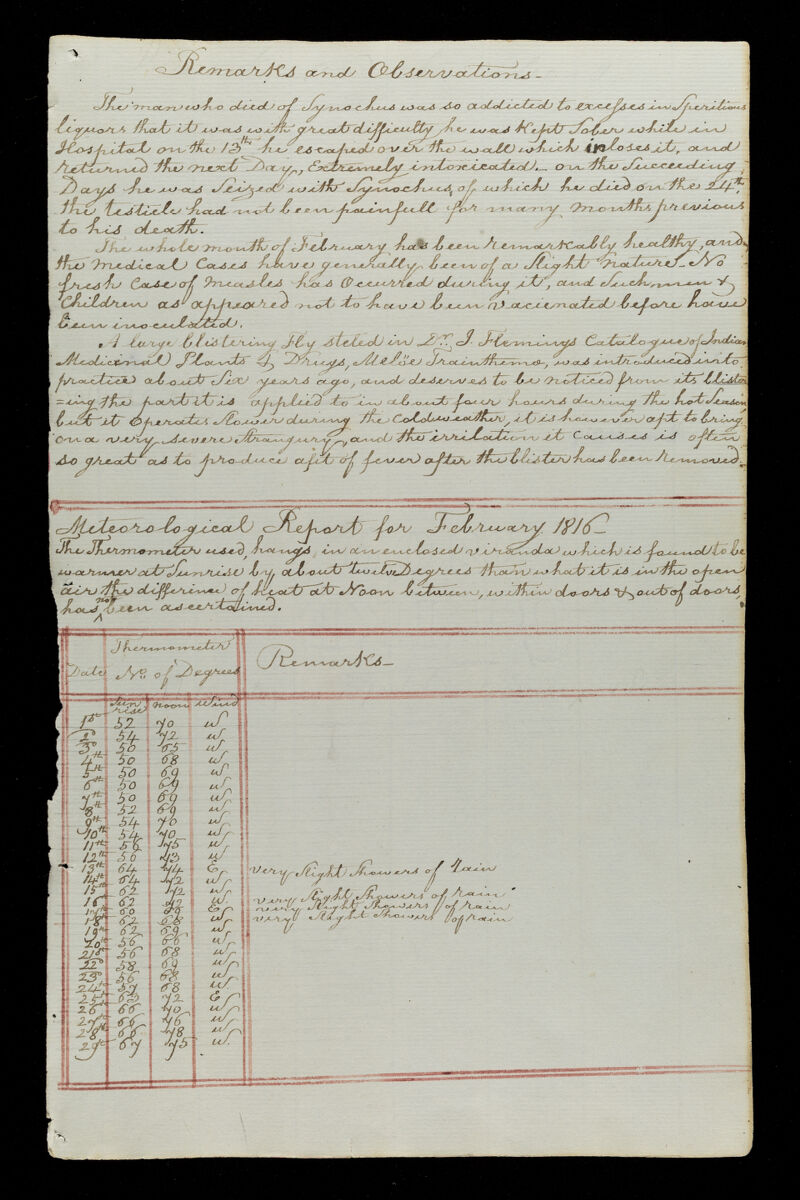 Remarks and Observations-
The man who died of Synochus was so addicted to excesses in Speritious
liquors that it was with great difficulty he was Kept Sober while in
Hospital on the 13th he escaped over the wall which incloses it, and
returned the next Day, Extremely intoxicated - on the Succeeding
Days he was Seized with Synochus, of which he died on the 24th
the testicle had not been painfull for many months previous
to his death.
The whole month of February has been remarkably healthy, and
the Medical Cases have generally been of a Slight Nature - No
fresh Case of Measles has Occurred during it, and Such men &
Children as appeared not to have been vaccienated before have
been inoculated.
A large blistering Fly steled in Dr. J. Flemings Catalogue of Indian
Medicinal Plants & Drugs, Meloe Trainthemæ, was introduced into
practice about Six years ago, and deserves to be noticed from its blister
=ing the part it is applied to in about four hours during the hot Season
but it Operates Slower during the Cold weather, it is however apt to bring
on a very severe Strangury, and the irrilation it Causes is often
so great as to produce a fit of fever after the blister has been removed.
Meteorological Report for February 1816-
The Thermometer used, hangs, in an enclosed viranda which is found to be
warmer at Sunrise by about twelve Degrees than what it is in the open
air the differince of heat at Noon between, within doors & out of doors
has not been ascertained.
Date Thermometer No. of Degrees Remarks-
Sun rise noon Wind
1st 52 70 W
2d 54 72 W
3d 50 65 W
4th 50 68 W
5th 50 69 W
6th 50 69 W
7th 50 69 W
8th 52 69 W
9th 54 70 W
10th 54 70 W
11th 56 75 W
12th 56 73 W
13th 64 74 E very Slight Showers of rain
14th 64 72 W
15th 62 72 W
16th 62 72 W very Slight Showers of rain
17th 60 E very Slight Showers of rain
18th 62 68 W very Slight Showers of rain
19th 62 69 W
20th 56 66 W
21st 56 68 W
22d 58 69 W
23d 56 68 W
24th 59 68 W
25th 63 72 E
26th 66 70 W
27th 66 76 W
28th 66 78 W
29th 67 75 W